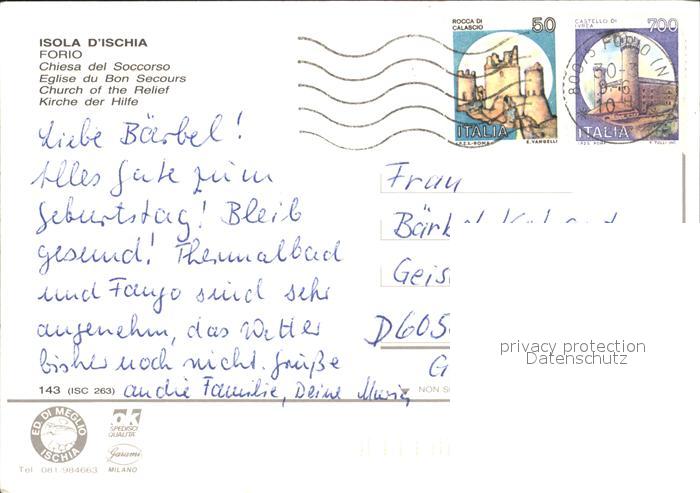 ISOLA D'ISCHIA
FORIO
Chiesa del Soccorso
Eglise du Bon Secours
Church of the Relief
Kirche der Hilfe
ROCCA DI
CALASCIO
50
ITALIA
I.P.Z.S.-ROMA E. VANGELLI
CASTELLO DI
IVREA
700
ITALIA
80075 FORIO (N
Liebe Bärbel!
Alles Gute zum
Geburtstag! Bleib
gesund! Thermalbad
und Fango sind sehr
angenehm, das Wetter
bisher noch nicht. Grüße
an die Familie, Deine
Frau
Bärbel
Geis
D605
G
privacy protection
Datenschutz
143 (ISC 263)
NON S
ED. DI MEGLIO
ISCHIA
Tel. 081/984663
ok
SPEDISCI
QUALITÀ
Garami
MILANO